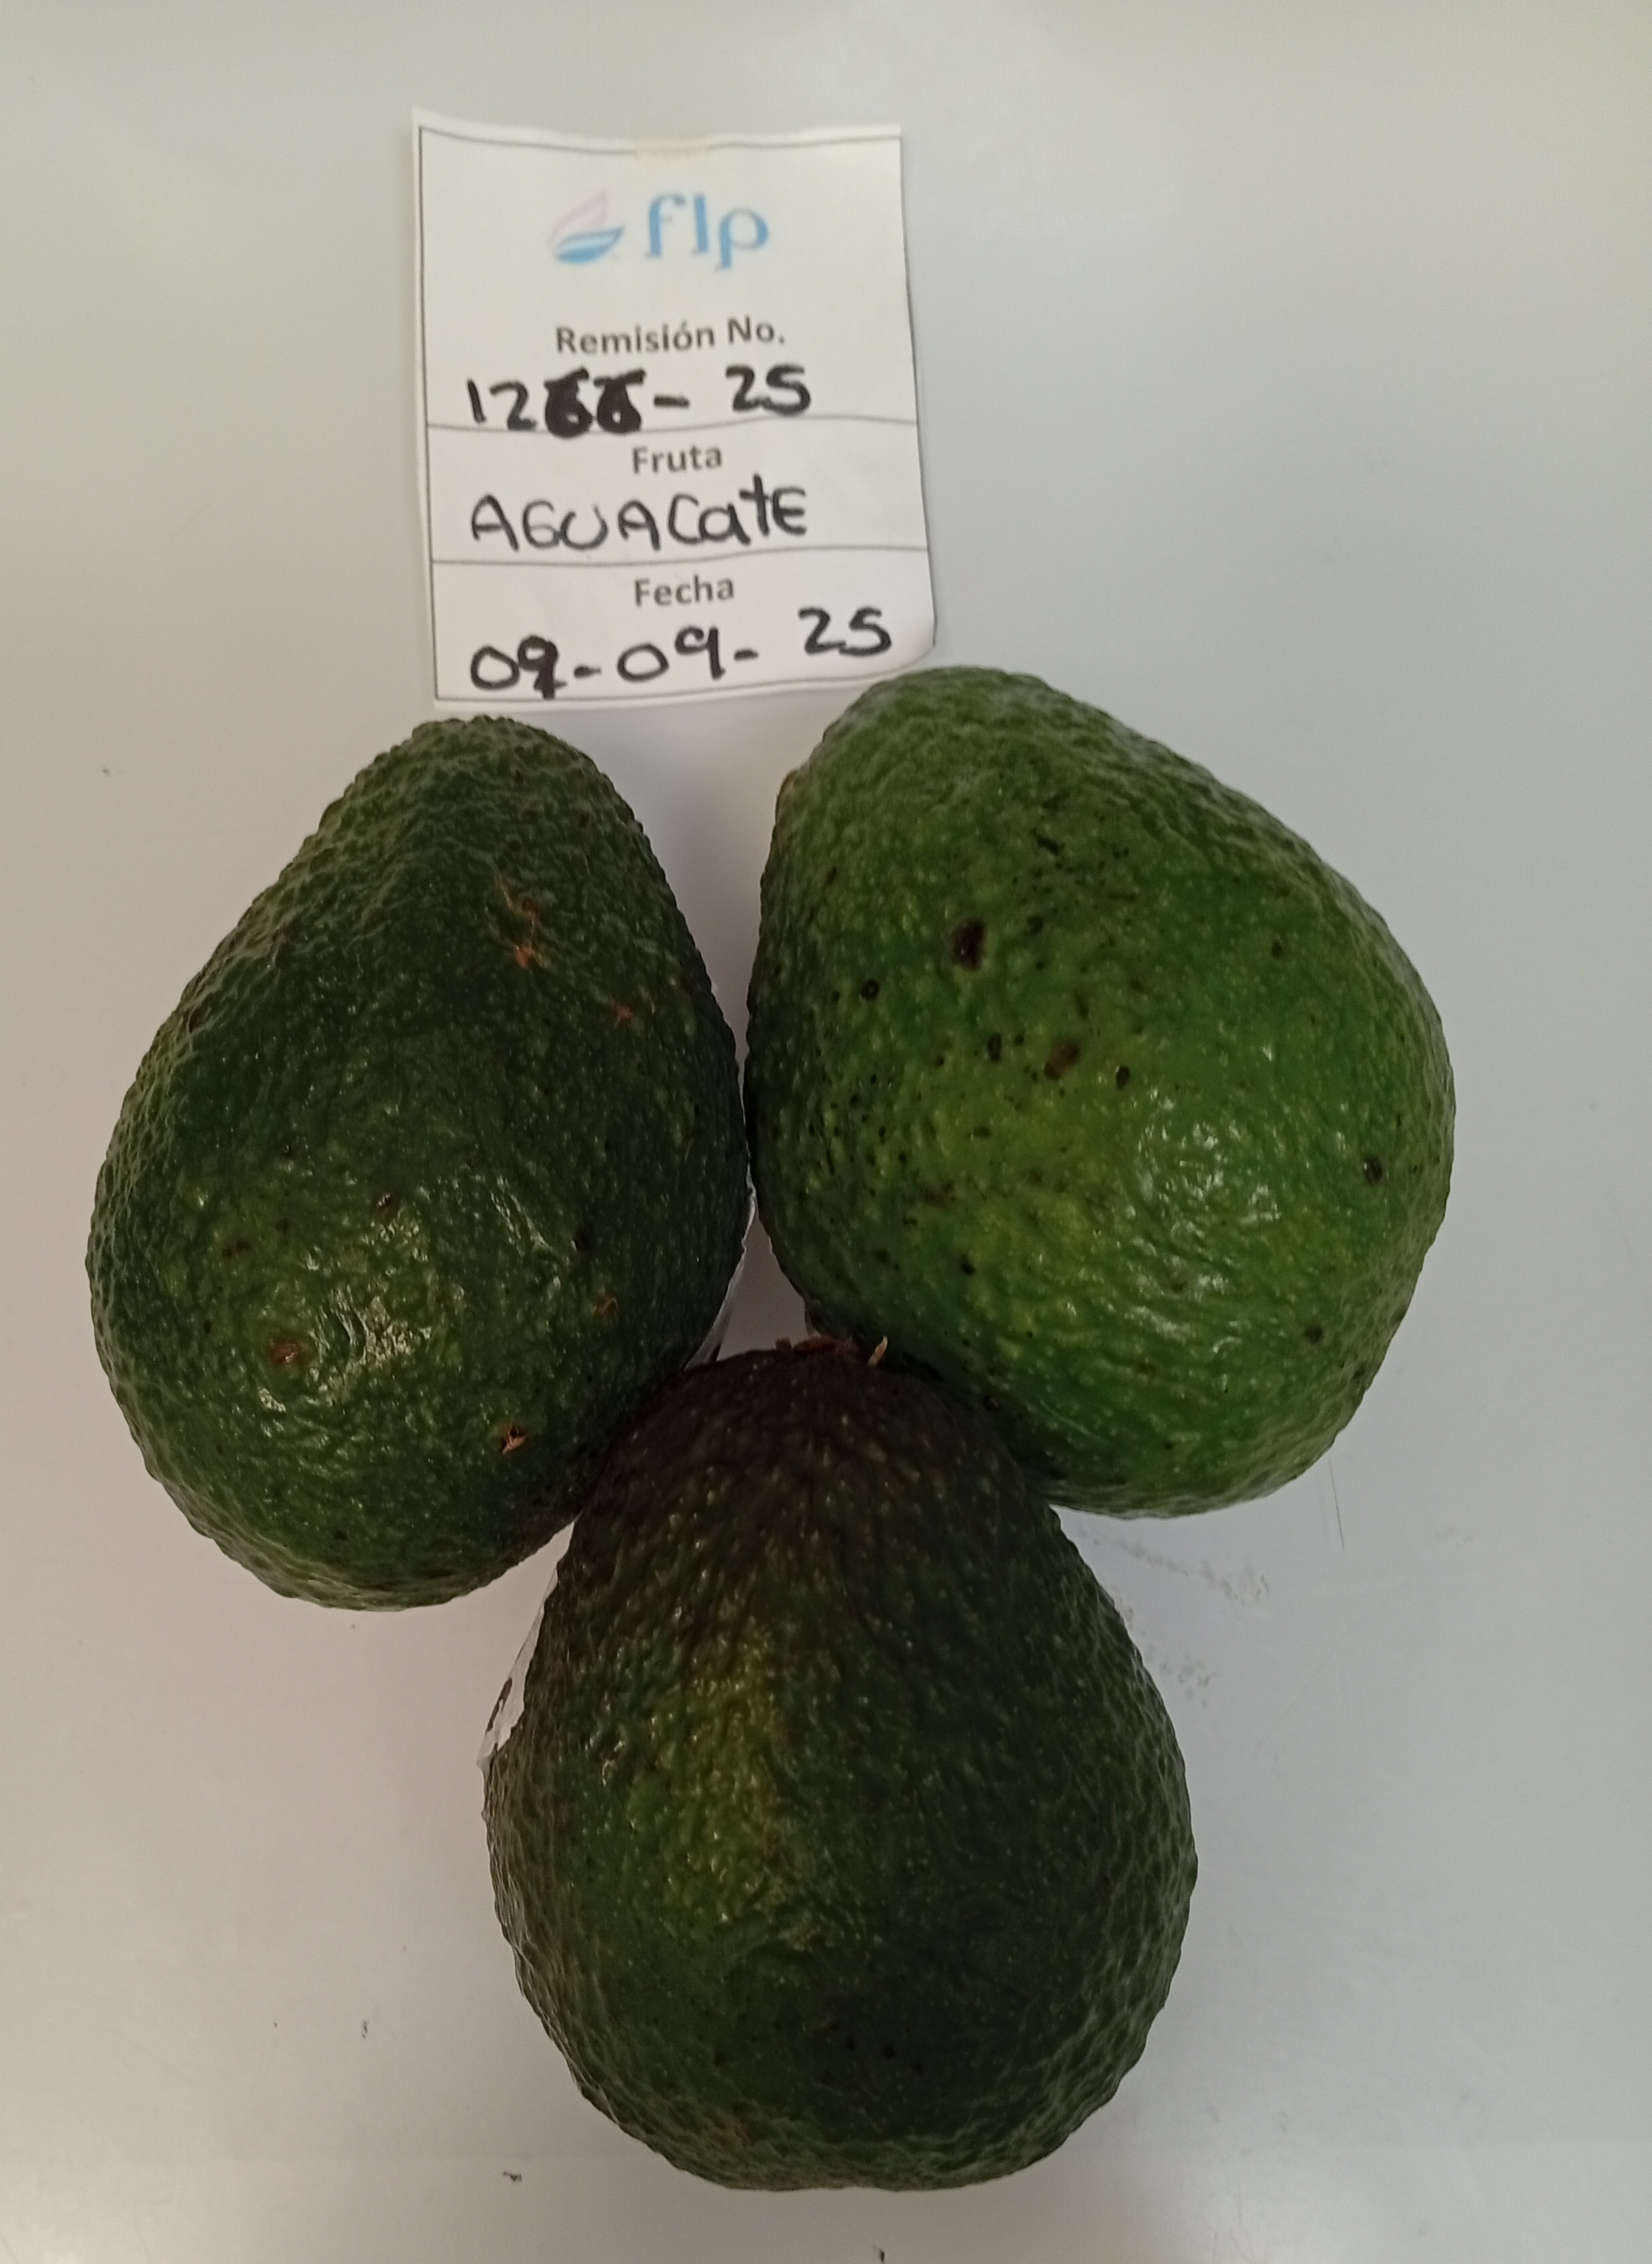 flp
Remisión No.
1266-25
Fruta
AGUACatE
Fecha
09-09-25